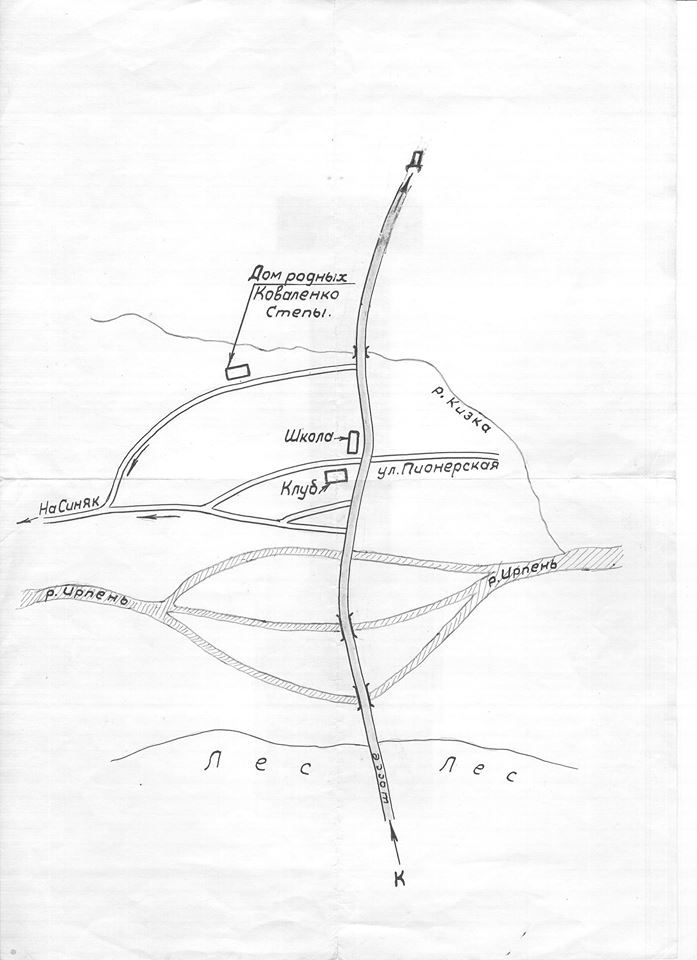 Д
Дом родных
Коваленко
Степы.
р. Кизка
Школа
ул. Пионерская
Клуб
На Синяк
р. Ирпень
р. Ирпень
Лес
Лес
шоссе
К